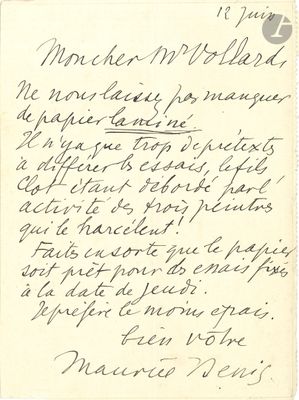 12 juin
Mon cher Mr Vollard
Ne nous laissez pas manquer
de papier laminé.
Il n'y a que trop de prétexte
à différer les essais, le fils
Clot étant débordé par l'
activité des trois peintres
qui le harcèlent !
Faites en sorte que le papier
soit prêt pour des essais fixés
à la date de jeudi.
Je préfère le moins épais.
bien vôtre
Maurice Denis